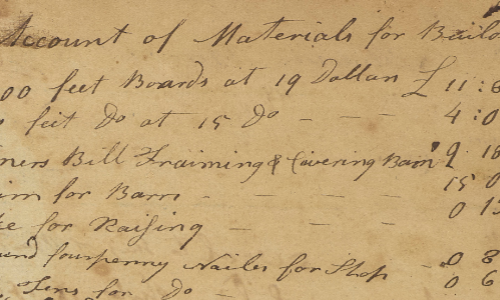 Account of Materials for Buil
00 feet Boards at 19 Dollars £ 11 : 8
s feit Do at 15 Do - - - 4 : 0
ners Bill Fraiming & Covering Barn 9 18
for Barn - - - 15 0
for Raising - - - 0 13
fourpenny Nailes for Shop - 0 8
Tens for Do - 0 6